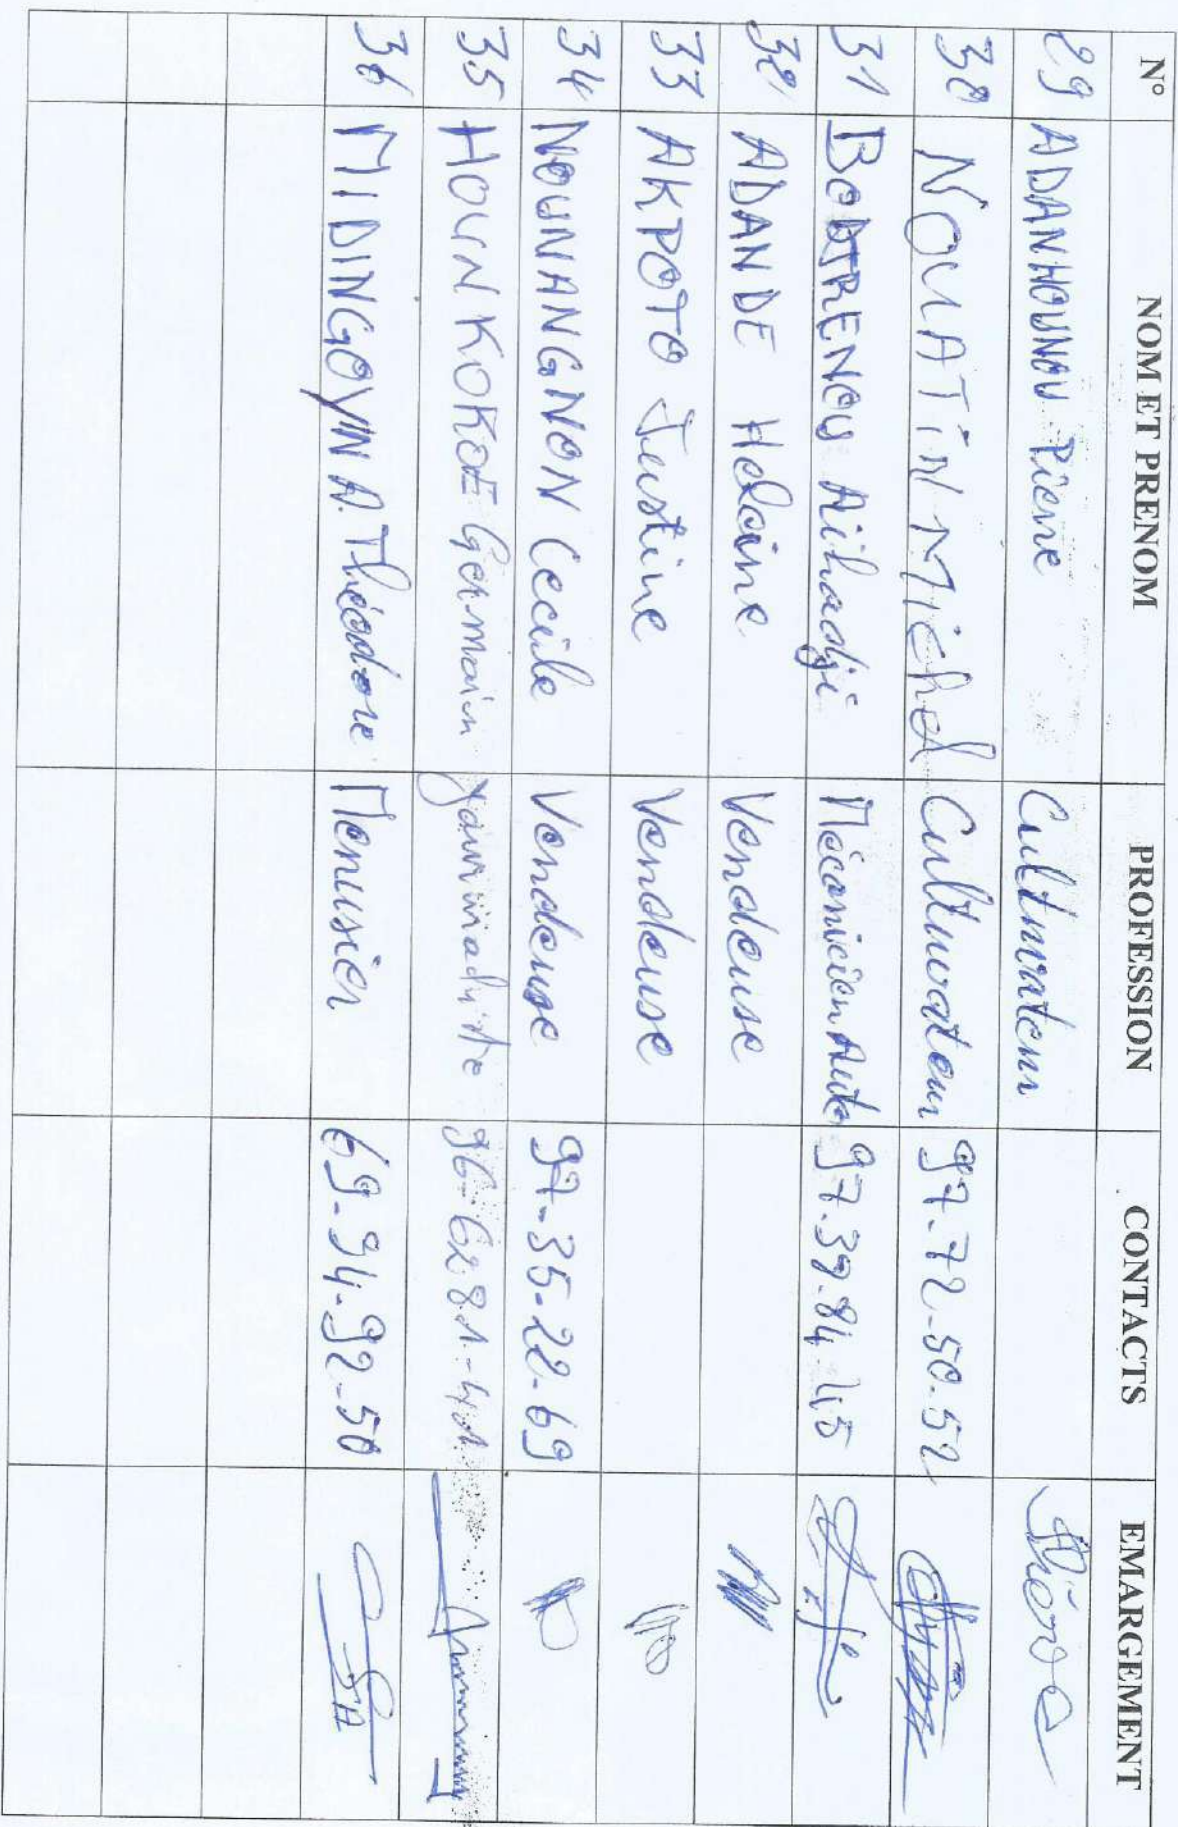 N° NOM ET PRENOM PROFESSION CONTACTS EMARGEMENT
29 ADANHOUNOU Pierre Cultivateur
30 NOUATIN Michel Cultivateur 97-72-50-52
31 Aihadji Mécanicien Auto 97.39.84.45
32 ADANDE Helcine Vendeuse
33 AKPOTO Justine Vendeuse
34 NOUNANGNON Cecile Vendeuse 97-35-22-69
35 HOUNKOKOE Germain 96-62-81-41
36 MIDINGOYI N A. Théodore Menusier 69-94-92-50